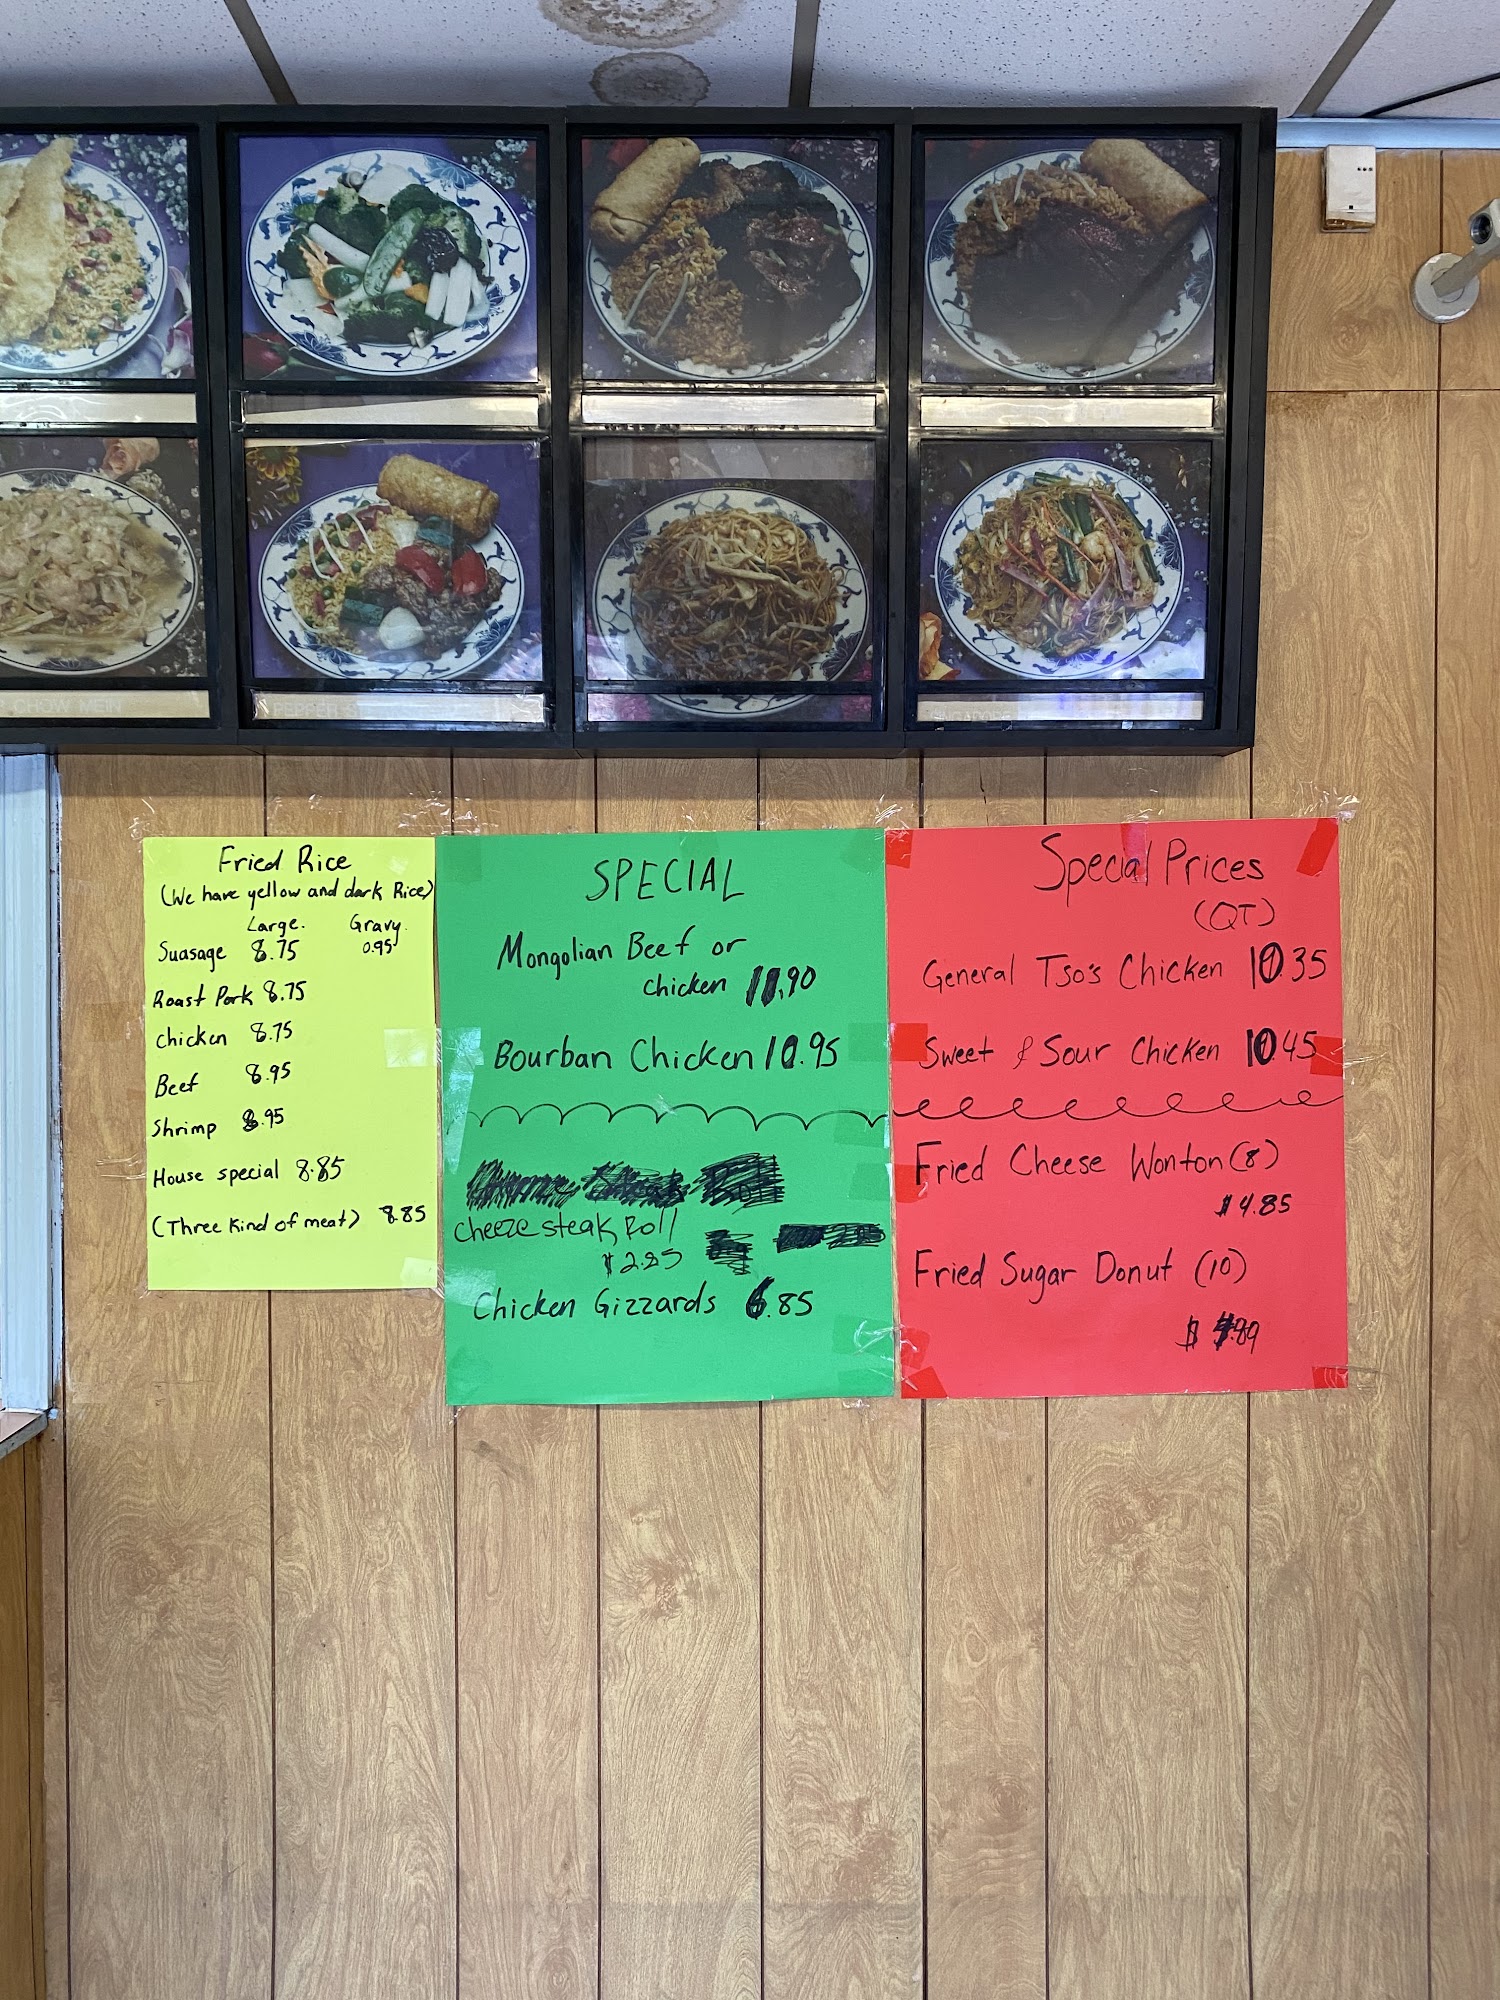 CHOW MEIN
PEPPER
Fried Rice
(We have yellow and dark Rice)
Large. Gravy.
Suasage 8.75 0.95
Roast Pork 8.75
chicken 8.75
Beef 8.95
Shrimp 8.95
House special 8.85
(Three kind of meat) 8.85
SPECIAL
Mongolian Beef or
chicken 11.90
Bourban Chicken 10.95
Cheeze steak Roll
$2.85
Chicken Gizzards 6.85
Special Prices
(QT)
General Tso's Chicken 10.35
Sweet & Sour Chicken 10.45
Fried Cheese Wonton (8)
$4.85
Fried Sugar Donut (10)